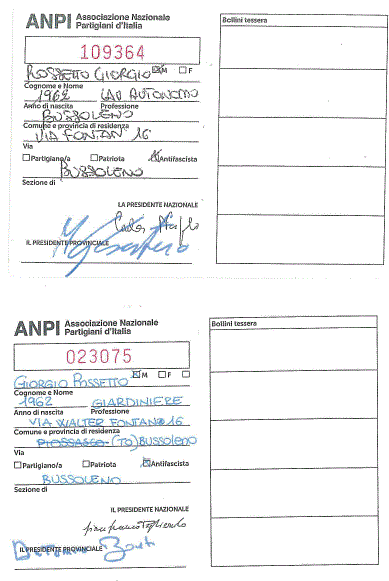 ANPI Associazione Nazionale
Partigiani d'Italia
Bollini tessera
109364
ROSSETTO GIORGIO ☒M ☐F
Cognome e Nome
1962 LAV AUTONOMO
Anno di nascita Professione
BUSSOLENO
Comune e provincia di residenza
VIA FONTAN 16
Via
☐Partigiano/a ☐Patriota ☒Antifascista
BUSSOLENO
Sezione di
LA PRESIDENTE NAZIONALE
IL PRESIDENTE PROVINCIALE
ANPI Associazione Nazionale
Partigiani d'Italia
Bollini tessera
023075
☒M ☐F
GIORGIO ROSSETTO
Cognome e Nome
1962 GIARDINIERE
Anno di nascita Professione
VIA WALTER FONTAN 16
Comune e provincia di residenza
PIOSSASCO (TO) BUSSOLENO
Via
☐Partigiano/a ☐Patriota ☒Antifascista
BUSSOLENO
Sezione di
IL PRESIDENTE NAZIONALE
IL PRESIDENTE PROVINCIALE